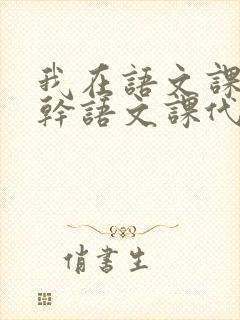 我在語文課
幹語文課代
俏書生